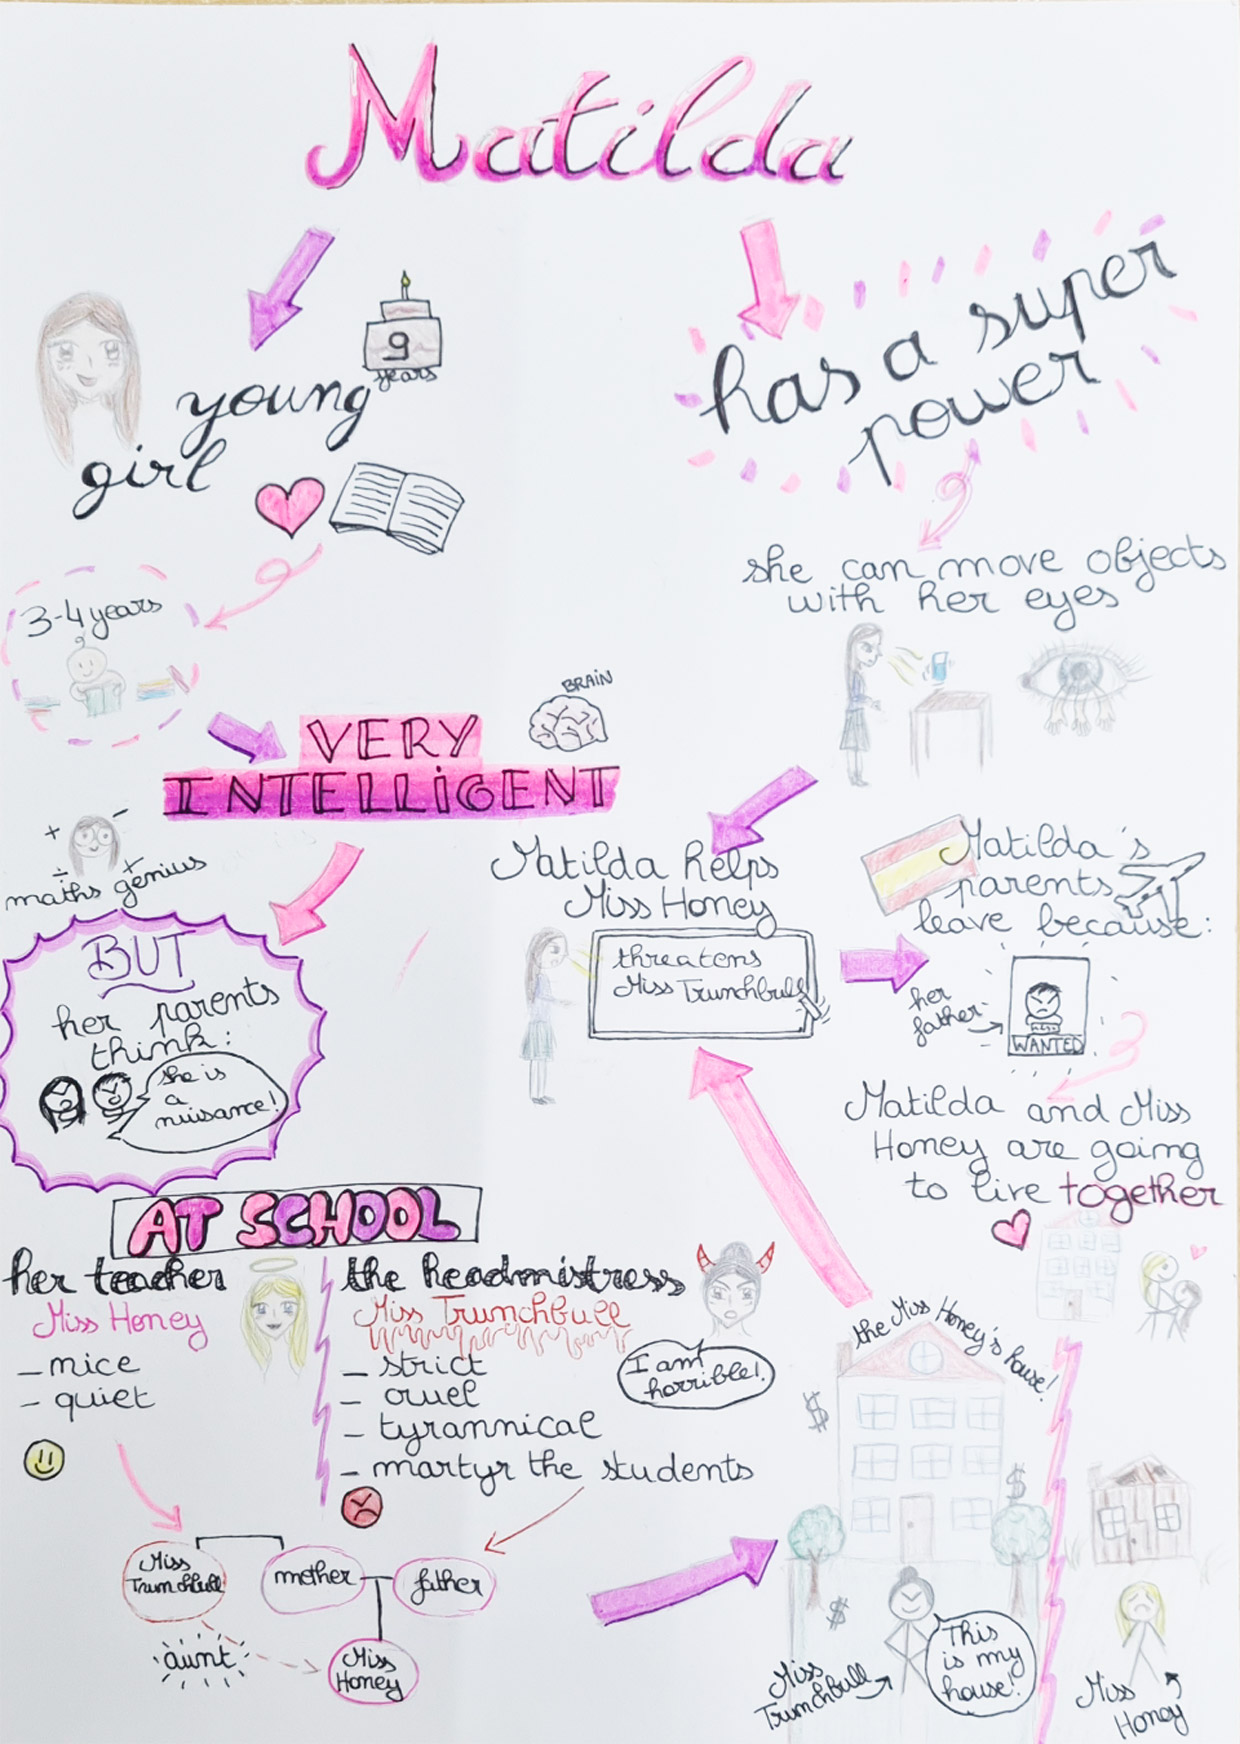 Matilda
young
girl
9
years
has a super
power
3-4 years
she can move objects
with her eyes
BRAIN
VERY
INTELLIGENT
+ -
÷ +
maths genius
BUT
her parents
think:
she is
a
nuisance!
Matilda helps
Miss Honey
threatens
Miss Trunchbull
Matilda's
parents
leave because:
her
father
WANTED
Matilda and Miss
Honey are going
to live together
AT SCHOOL
her teacher
Miss Honey
- nice
- quiet
the headmistress
Miss Trunchbull
- strict
- cruel
- tyrannical
- martyr the students
I am
horrible!
Miss
Trunchbull
mother
father
aunt
Miss
Honey
the Miss Honey's house!
$
$
$
This
is my
house!
Miss
Trunchbull
Miss
Honey